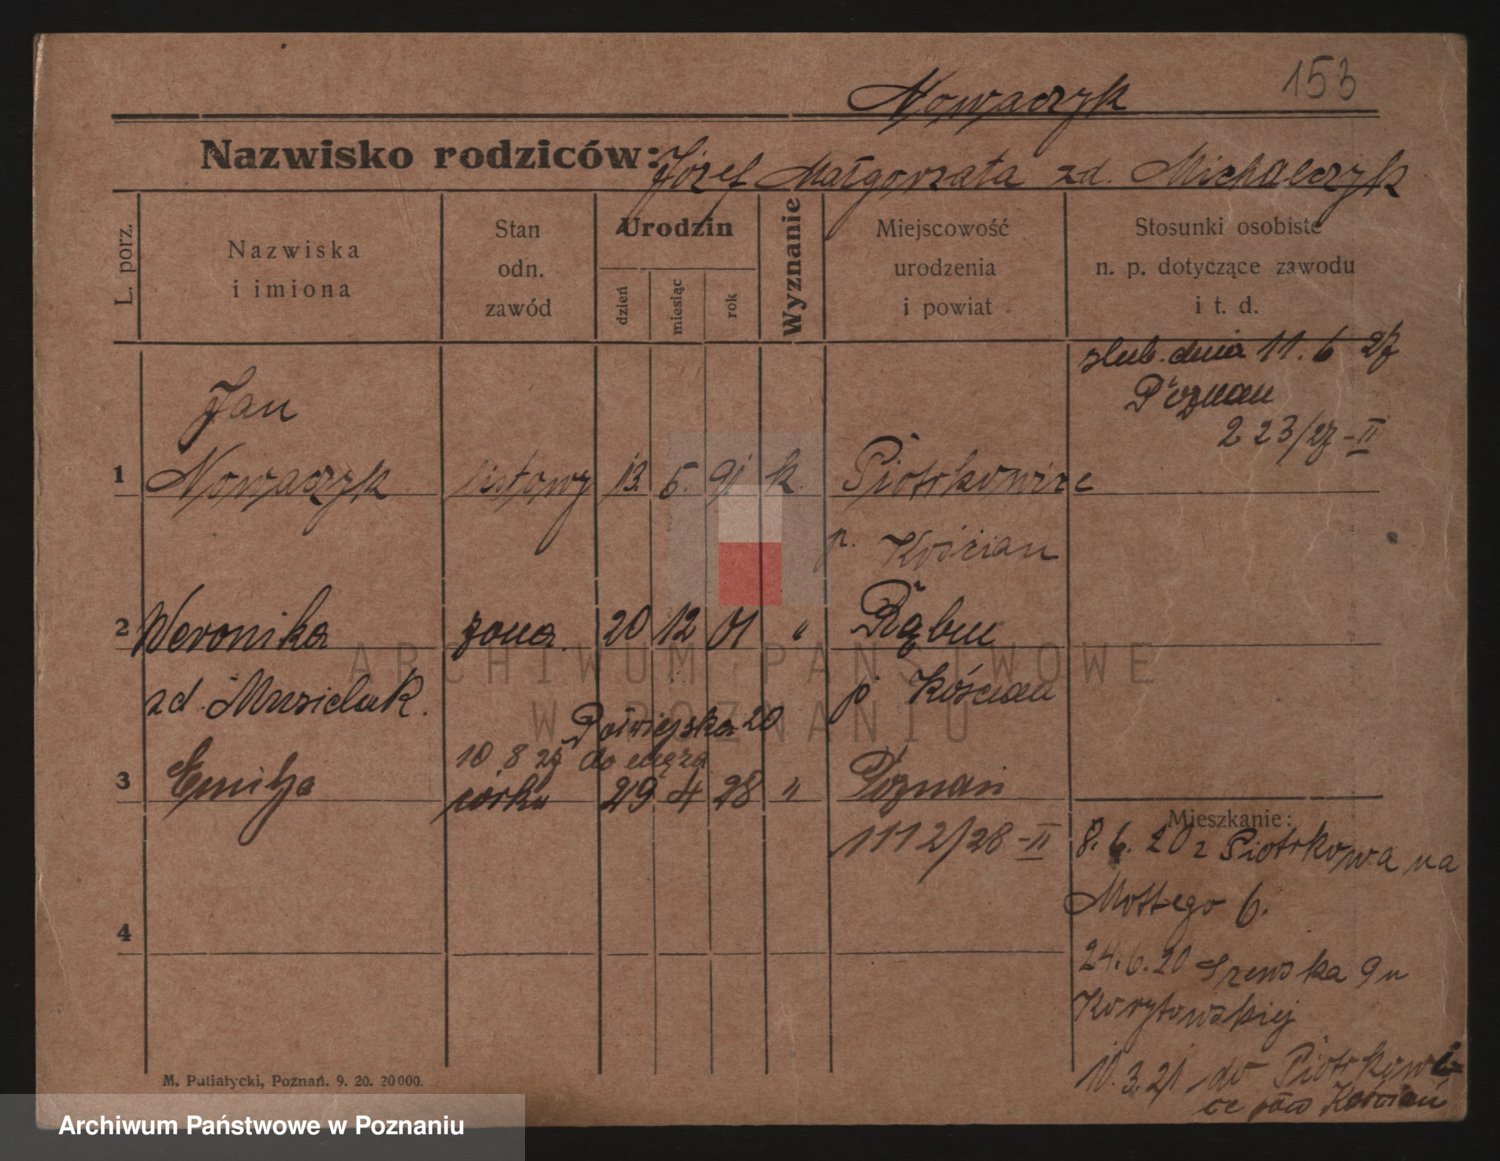 153
Nowaczyk
Nazwisko rodziców: Józef Małgorzata zd. Michalczyk
L. porz.
Nazwiska
i imiona
Stan
odn.
zawód
Urodzin
dzień
miesiąc
rok
Wyznanie
Miejscowość
urodzenia
i powiat
Stosunki osobiste
n. p. dotyczące zawodu
i t. d.
slub. dnia 11.6 27
Poznań
223/27-II
Jan
1 Nowaczyk 13. 5. 91 k. Piotrkowice
p. Kościan
2 Weronika żona. 20 12 01 " Rąbiń
zd. Musielak. p Kościan
20
10 8 29 do męża
3 Emilja córka 29 4 28 " Poznań
1112/28-II
Mieszkanie:
8.6.20 z Piotrkowa na
Mottego 6.
4
24.6.20 9 u
Korytowskiej
11.3.21 do Piotrkowi-
ce pow Kościan
M. Putiatycki, Poznań. 9. 20. 20000.
ARCHIWUM PAŃSTWOWE
W POZNANIU
Archiwum Państwowe w Poznaniu